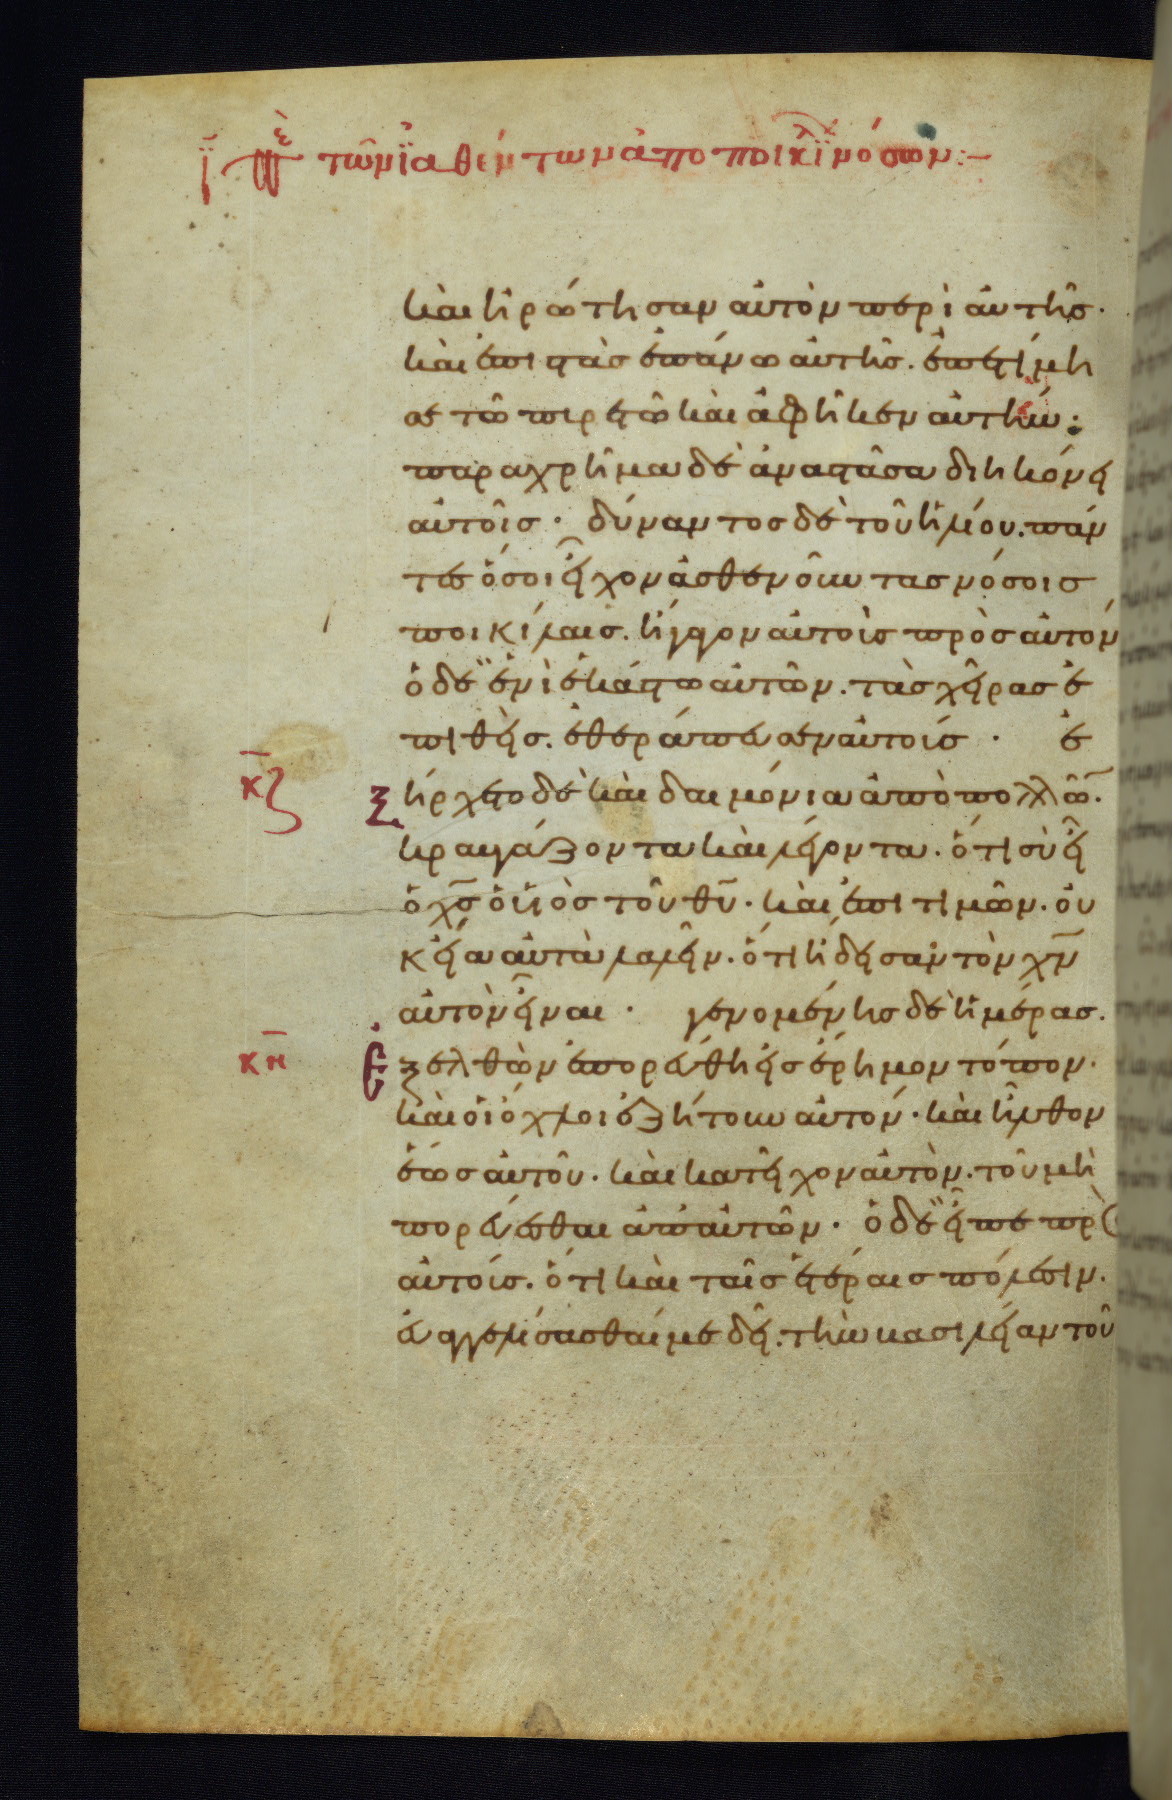 ῑ πε τῶν ἰαθέντων ἀπο ποικιλ νόσων:—
καὶ ἠρώτησαν αὐτὸν περὶ αὐτῆς·
καὶ ἐπιστὰς ἐπάνω αὐτῆς. ἐπετίμη
σε τῶ πυρετῶ καὶ ἀφῆκεν αὐτήν·
παραχρῆμα δὲ ἀναστᾶσα διηκόνει
αὐτοῖς· δύναντος δὲ τοῦ ἡλίου. πάν
τες ὅσοι εἶχον ἀσθενοῦντας νόσοις
ποικίλαις. ἤγαγον αὐτοὺς πρὸς αὐτόν
ὁ δὲ ἑνὶ ἑκάστω αὐτῶν. τὰς χεῖρας ἐ
πιθεὶς. ἐθεράπευσεν αὐτούς· ἐ
κζ ξήρχετο δὲ καὶ δαιμόνια ἀπὸ πολλῶ̄.
κραυγάζοντα καὶ λέγοντα. ὅτι σὺ εἶ
ὁ χ̅ς̅ ὁ υἱὸς τοῦ θ̅υ̅· καὶ ἐπιτιμῶν. οὐ
κ εἴα αὐτὰ λαλεῖν. ὅτι ἤδεισαν τὸν χ̅ν̅
αὐτὸν εἶναι· γενομένης δὲ ἡμέρας.
κη Ἐξελθὼν ἐπορεύθη εἰς ἔρημον τόπον·
καὶ οἱ ὄχλοι ἐζήτουν αὐτόν· καὶ ἦλθον
ἕως αὐτοῦ. καὶ κατεῖχον αὐτὸν. τοῦ μὴ
πορεύεσθαι ἀπ' αὐτῶν· ὁ δὲ εἶπε πρὸς
αὐτούς. ὅτι καὶ ταῖς ἑτέραις πόλεσιν.
εὐαγγελίσασθαί με δεῖ. τὴν βασιλείαν τοῦ